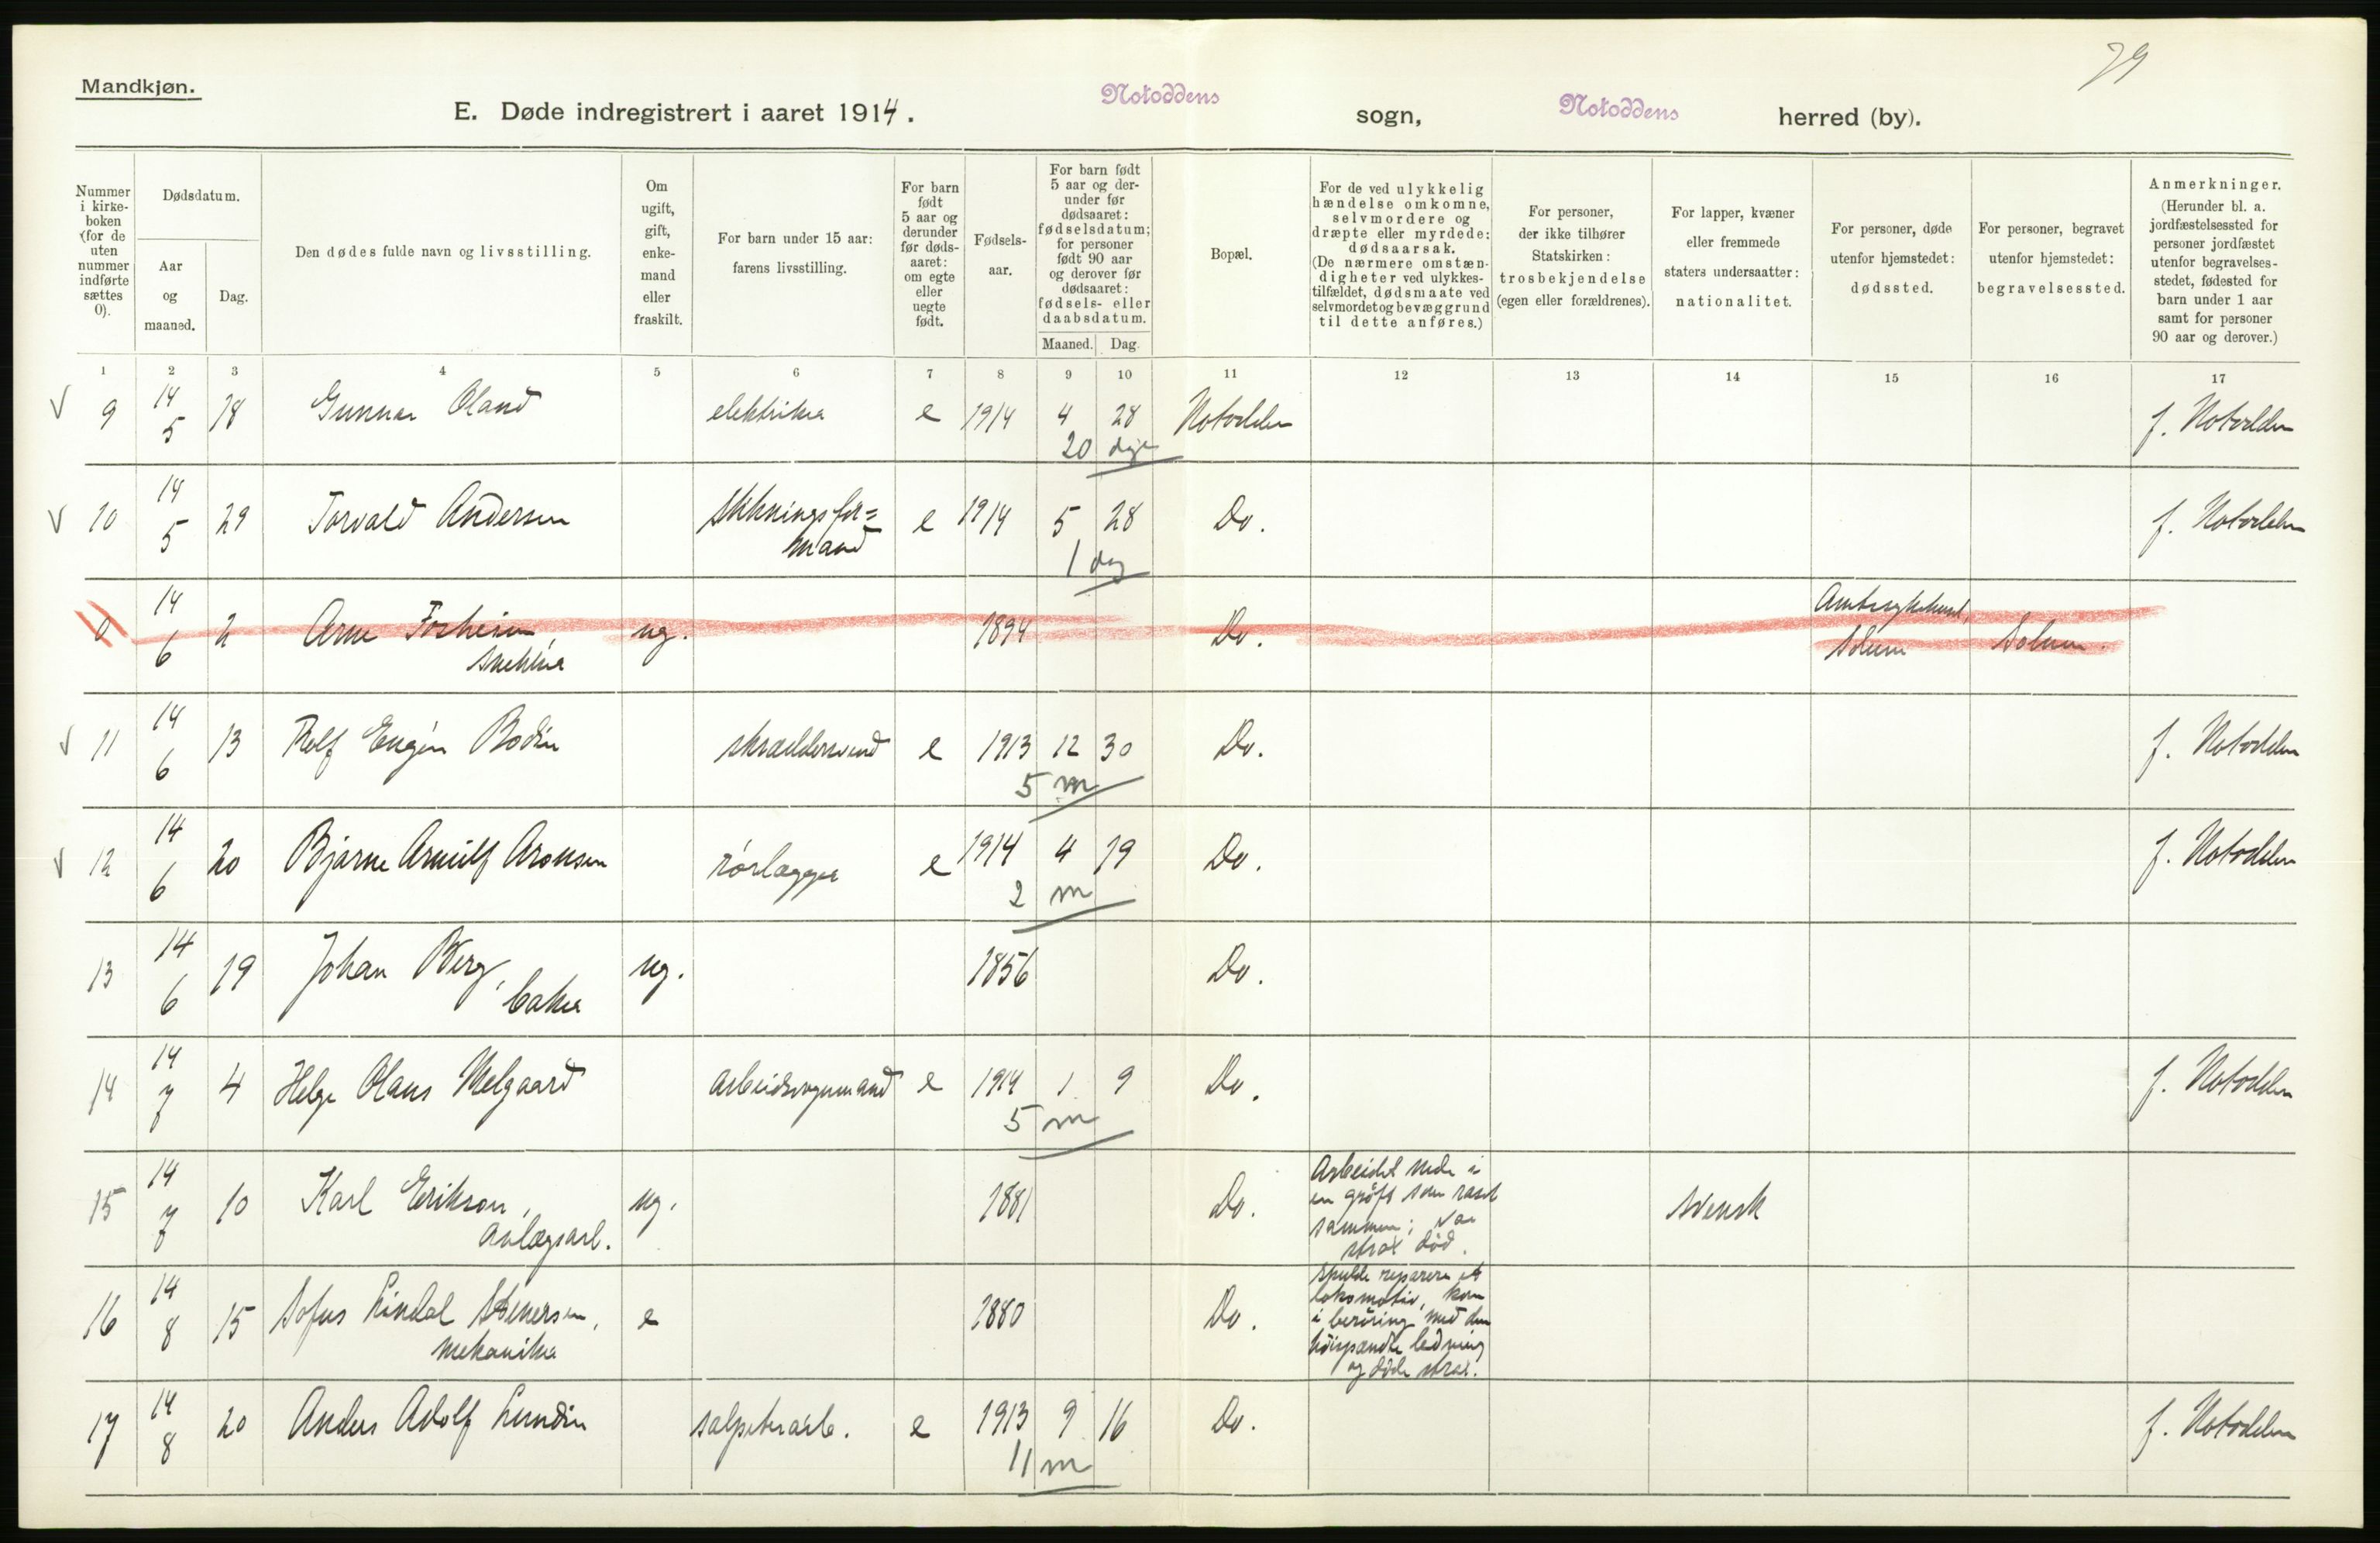 79
Mandkjøn.
E. Døde indregistrert i aaret 1914. Notoddens sogn, Notoddens herred (by).
Nummer i kirkeboken (for de uten nummer indførte sættes 0).
Dødsdatum.
Aar og maaned.
Dag.
Den dødes fulde navn og livsstilling.
Om ugift, gift, enkemand eller fraskilt.
For barn under 15 aar: farens livsstilling.
For barn født 5 aar og derunder før dødsaaret: om egte eller uegte født.
Fødselsaar.
For barn født 5 aar og derunder før dødsaaret: fødselsdatum; for personer født 90 aar og derover før dødsaaret: fødsels- eller daabsdatum.
Maaned. Dag.
Bopæl.
For de ved ulykkelig hændelse omkomne, selvmordere og dræpte eller myrdede: dødsaarsak. (De nærmere omstændigheter ved ulykkestilfældet, dødsmaate ved selvmordet og bevæggrund til dette anføres.)
For personer, der ikke tilhører Statskirken: trosbekjendelse (egen eller forældrenes).
For lapper, kvæner eller fremmede staters undersaatter: nationalitet.
For personer, døde utenfor hjemstedet: dødssted.
For personer, begravet utenfor hjemstedet: begravelsessted.
Anmerkninger. (Herunder bl. a. jordfæstelsessted for personer jordfæstet utenfor begravelsesstedet, fødested for barn under 1 aar samt for personer 90 aar og derover.)
1 2 3 4 5 6 7 8 9 10 11 12 13 14 15 16 17
9 14/5 18 Gunnar Oland elektriker e 1914 4 28 Notodden f. Notodden
20 dage
10 14/5 29 Torvald Andersen stikningsfor=
mand e 1914 5 28 Do. f. Notodden
1 dag
0 14/6 2 Arne Fosheim, ug. 1894 Do. Amtssykehuset,
snekker Solum Solum.
11 14/6 13 Rolf Eugén Bodin skræddersvend e 1913 12 30 Do. f. Notodden
5 m
12 14/6 20 Bjarne Arnulf Aronsen rørlægger e 1914 4 19 Do. f. Notodden
2 m
13 14/6 19 Johan Berg, ug. 1856 Do.
baker
14 14/7 4 Helge Olaus Melgaard arbeidsvognmand e 1914 1 9 Do. f. Notodden
5 m
15 14/7 10 Karl Erikson, ug. 1881 Do. svensk
anlægsarb.
Arbeidet nede i
en grøft som raset
sammen; var
strax død.
16 14/8 15 Sofus Lindal Stenersen, e 1880 Do.
mekaniker
Skulde reparere et
lokomotiv, kom
i berøring med den
høispændte ledning
og døde strax.
17 14/8 20 Anders Adolf Lundin salpeterarb. e 1913 9 16 Do. f. Notodden
11 m